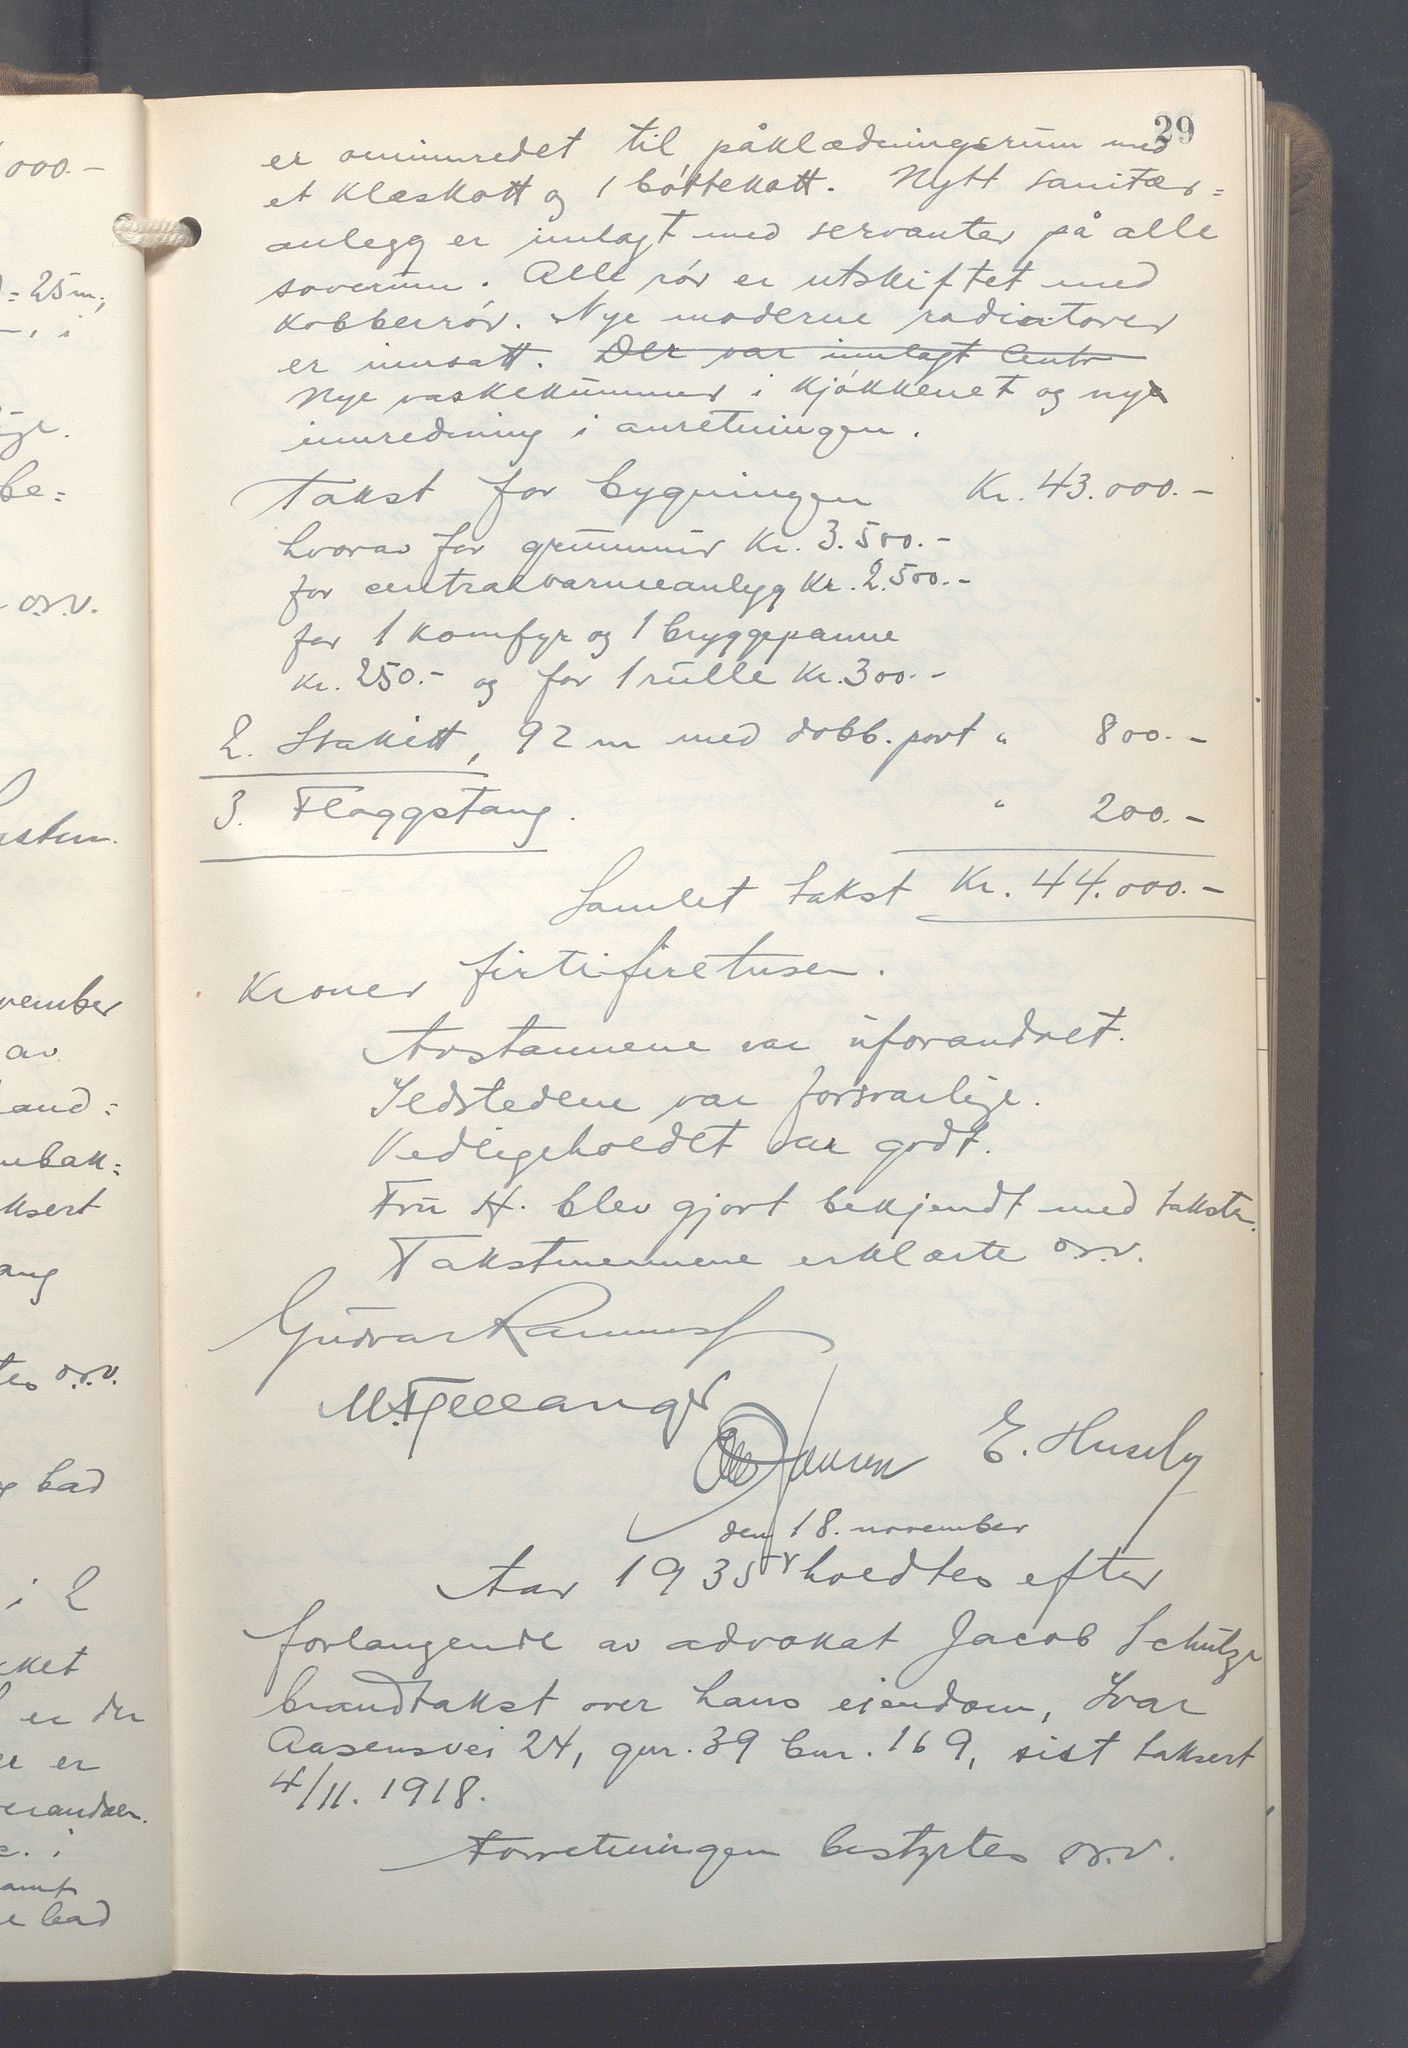 29
er ominnredet til påklædningsrum med
et klæskott og 1 bøttekott. Nytt sanitær=
anlegg er innlagt med servanter på alle
soverum. Alle rør er utskiftet med
kobberrør. Nye moderne radiatorer
er innsatt. Der var innlagt Centr
Nye vaskekummer i kjøkkenet og nye
innredning i anretningen.
Takst for bygningen Kr. 43.000.-
hvorav for grunnmur Kr. 3.500.-
for centralvarmeanlegg Kr. 2.500.-
for 1 komfyr og 1 bryggepanne
Kr. 250.- og for 1 rulle Kr. 300.-
2. Stakitt, 92 m med dobb. port " 800.-
3. Flaggstang. " 200.-
Samlet takst Kr. 44.000.-
Kroner firtifiretusen.
Avstannene var uforandret.
Ildstedene var forsvarlige.
Vedligeholdet var godt.
Fru H. blev gjort bekjendt med taksten.
Takstmennene erklærte o.s.v.
Gudvar
M. Fjellanger
Jansen E. Huseby
den 18. november
Aar 1935 holdtes efter
forlangende av advokat Jacob Schulze
brandtakst over hans eiendom, Ivar
Aasensvei 24, gnr. 39 bnr. 169, sist taksert
4/11. 1918.
Forretningen bestyrtes o.s.v.
000.-
= 25 m,
be=
o.s.v.
av
and=
ksert
ang
o.s.v.
bad
i 2
kket
er der
er
bad